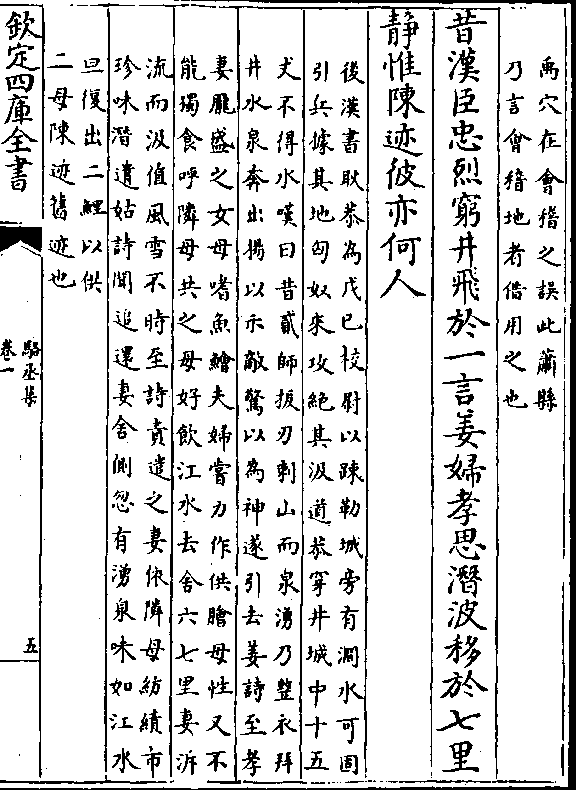 禹穴在會稽之誤此蕭縣
乃言會稽地者借用之也
昔漢臣忠烈窮井飛於一言姜婦孝思潛波移於七里
靜惟陳迹彼亦何人
後漢書耿恭為戊巳校尉以踈勒城旁有澗水可固
引兵據其地匈奴來攻絶其汲道恭穿井城中十五
丈不得水嘆曰昔貳師拔刃刺山而泉湧乃整衣拜
井水泉奔出揚以示敵驚以為神遂引去姜詩至孝
妻龎盛之女母嗜魚鱠夫婦嘗力作供膾母性又不
能獨食呼隣母共之母好飲江水去舍六七里妻泝
流而汲值風雪不時至詩責遣之妻依隣母紡績市
珍味潛遺姑詩聞追還妻舍側忽有湧泉味如江水
旦復出二鯉以供
二母陳迹舊迹也
欽定四庫全書
駱丞集
卷一
五